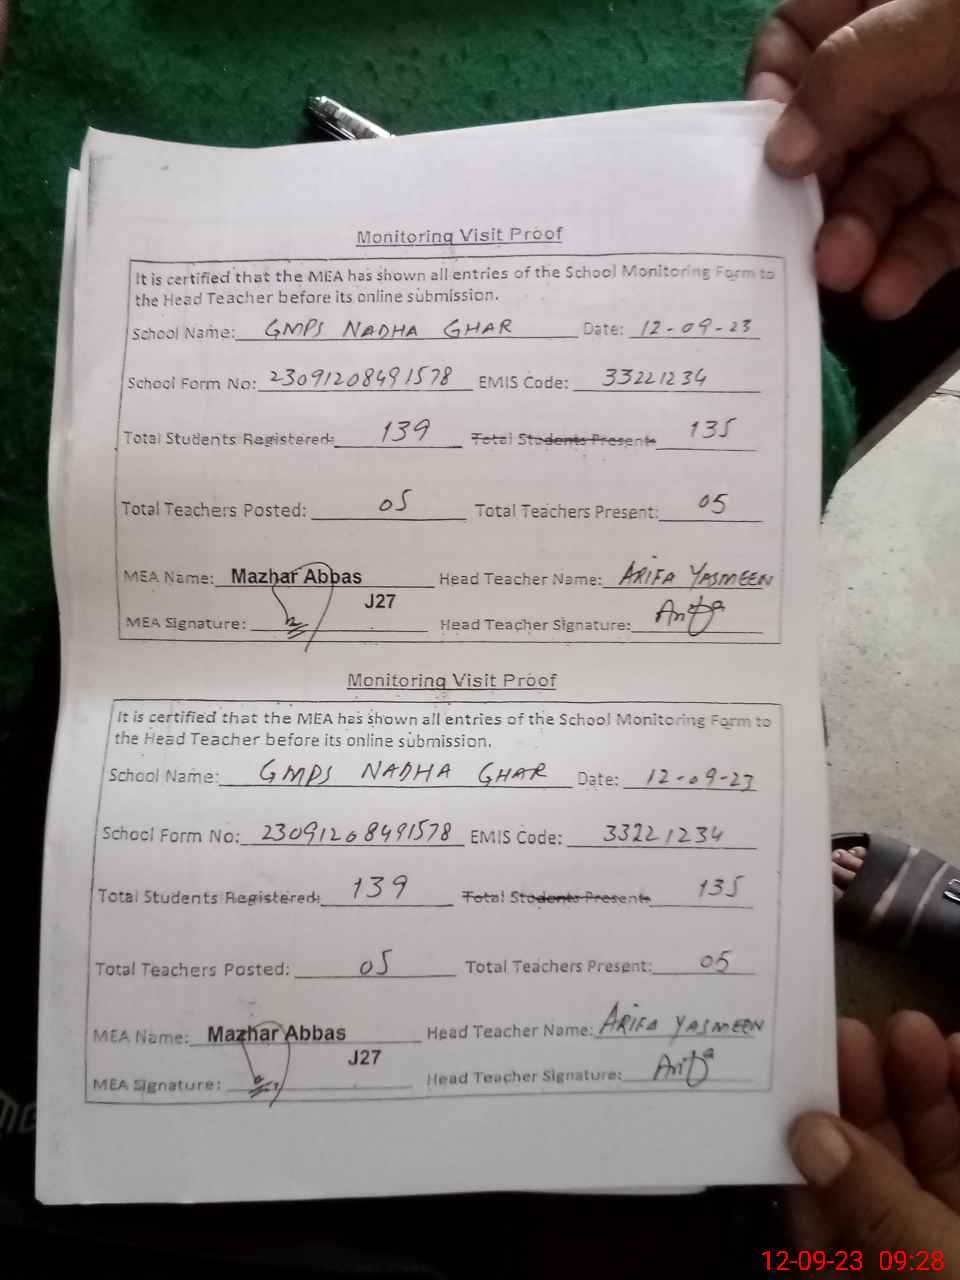 Monitoring Visit Proof
It is certified that the MEA has shown all entries of the School Monitoring Form to
the Head Teacher before its online submission.
School Name: GMPS NADHA GHAR Date: 12-09-23
School Form No: 23091208491578 EMIS Code: 33221234
Total Students Registered: 139 Total Students Present: 135
Total Teachers Posted: 05 Total Teachers Present: 05
MEA Name: Mazhar Abbas Head Teacher Name: ARIFA YASMEEN
J27
MEA Signature: Head Teacher Signature: Arifa
Monitoring Visit Proof
It is certified that the MEA has shown all entries of the School Monitoring Form to
the Head Teacher before its online submission.
School Name: GMPS NADHA GHAR Date: 12-09-23
School Form No: 23091208491578 EMIS Code: 33221234
Total Students Registered: 139 Total Students Present: 135
Total Teachers Posted: 05 Total Teachers Present: 05
MEA Name: Mazhar Abbas Head Teacher Name: ARIFA YASMEEN
J27
MEA Signature: Head Teacher Signature: Arifa
12-09-23 09:28